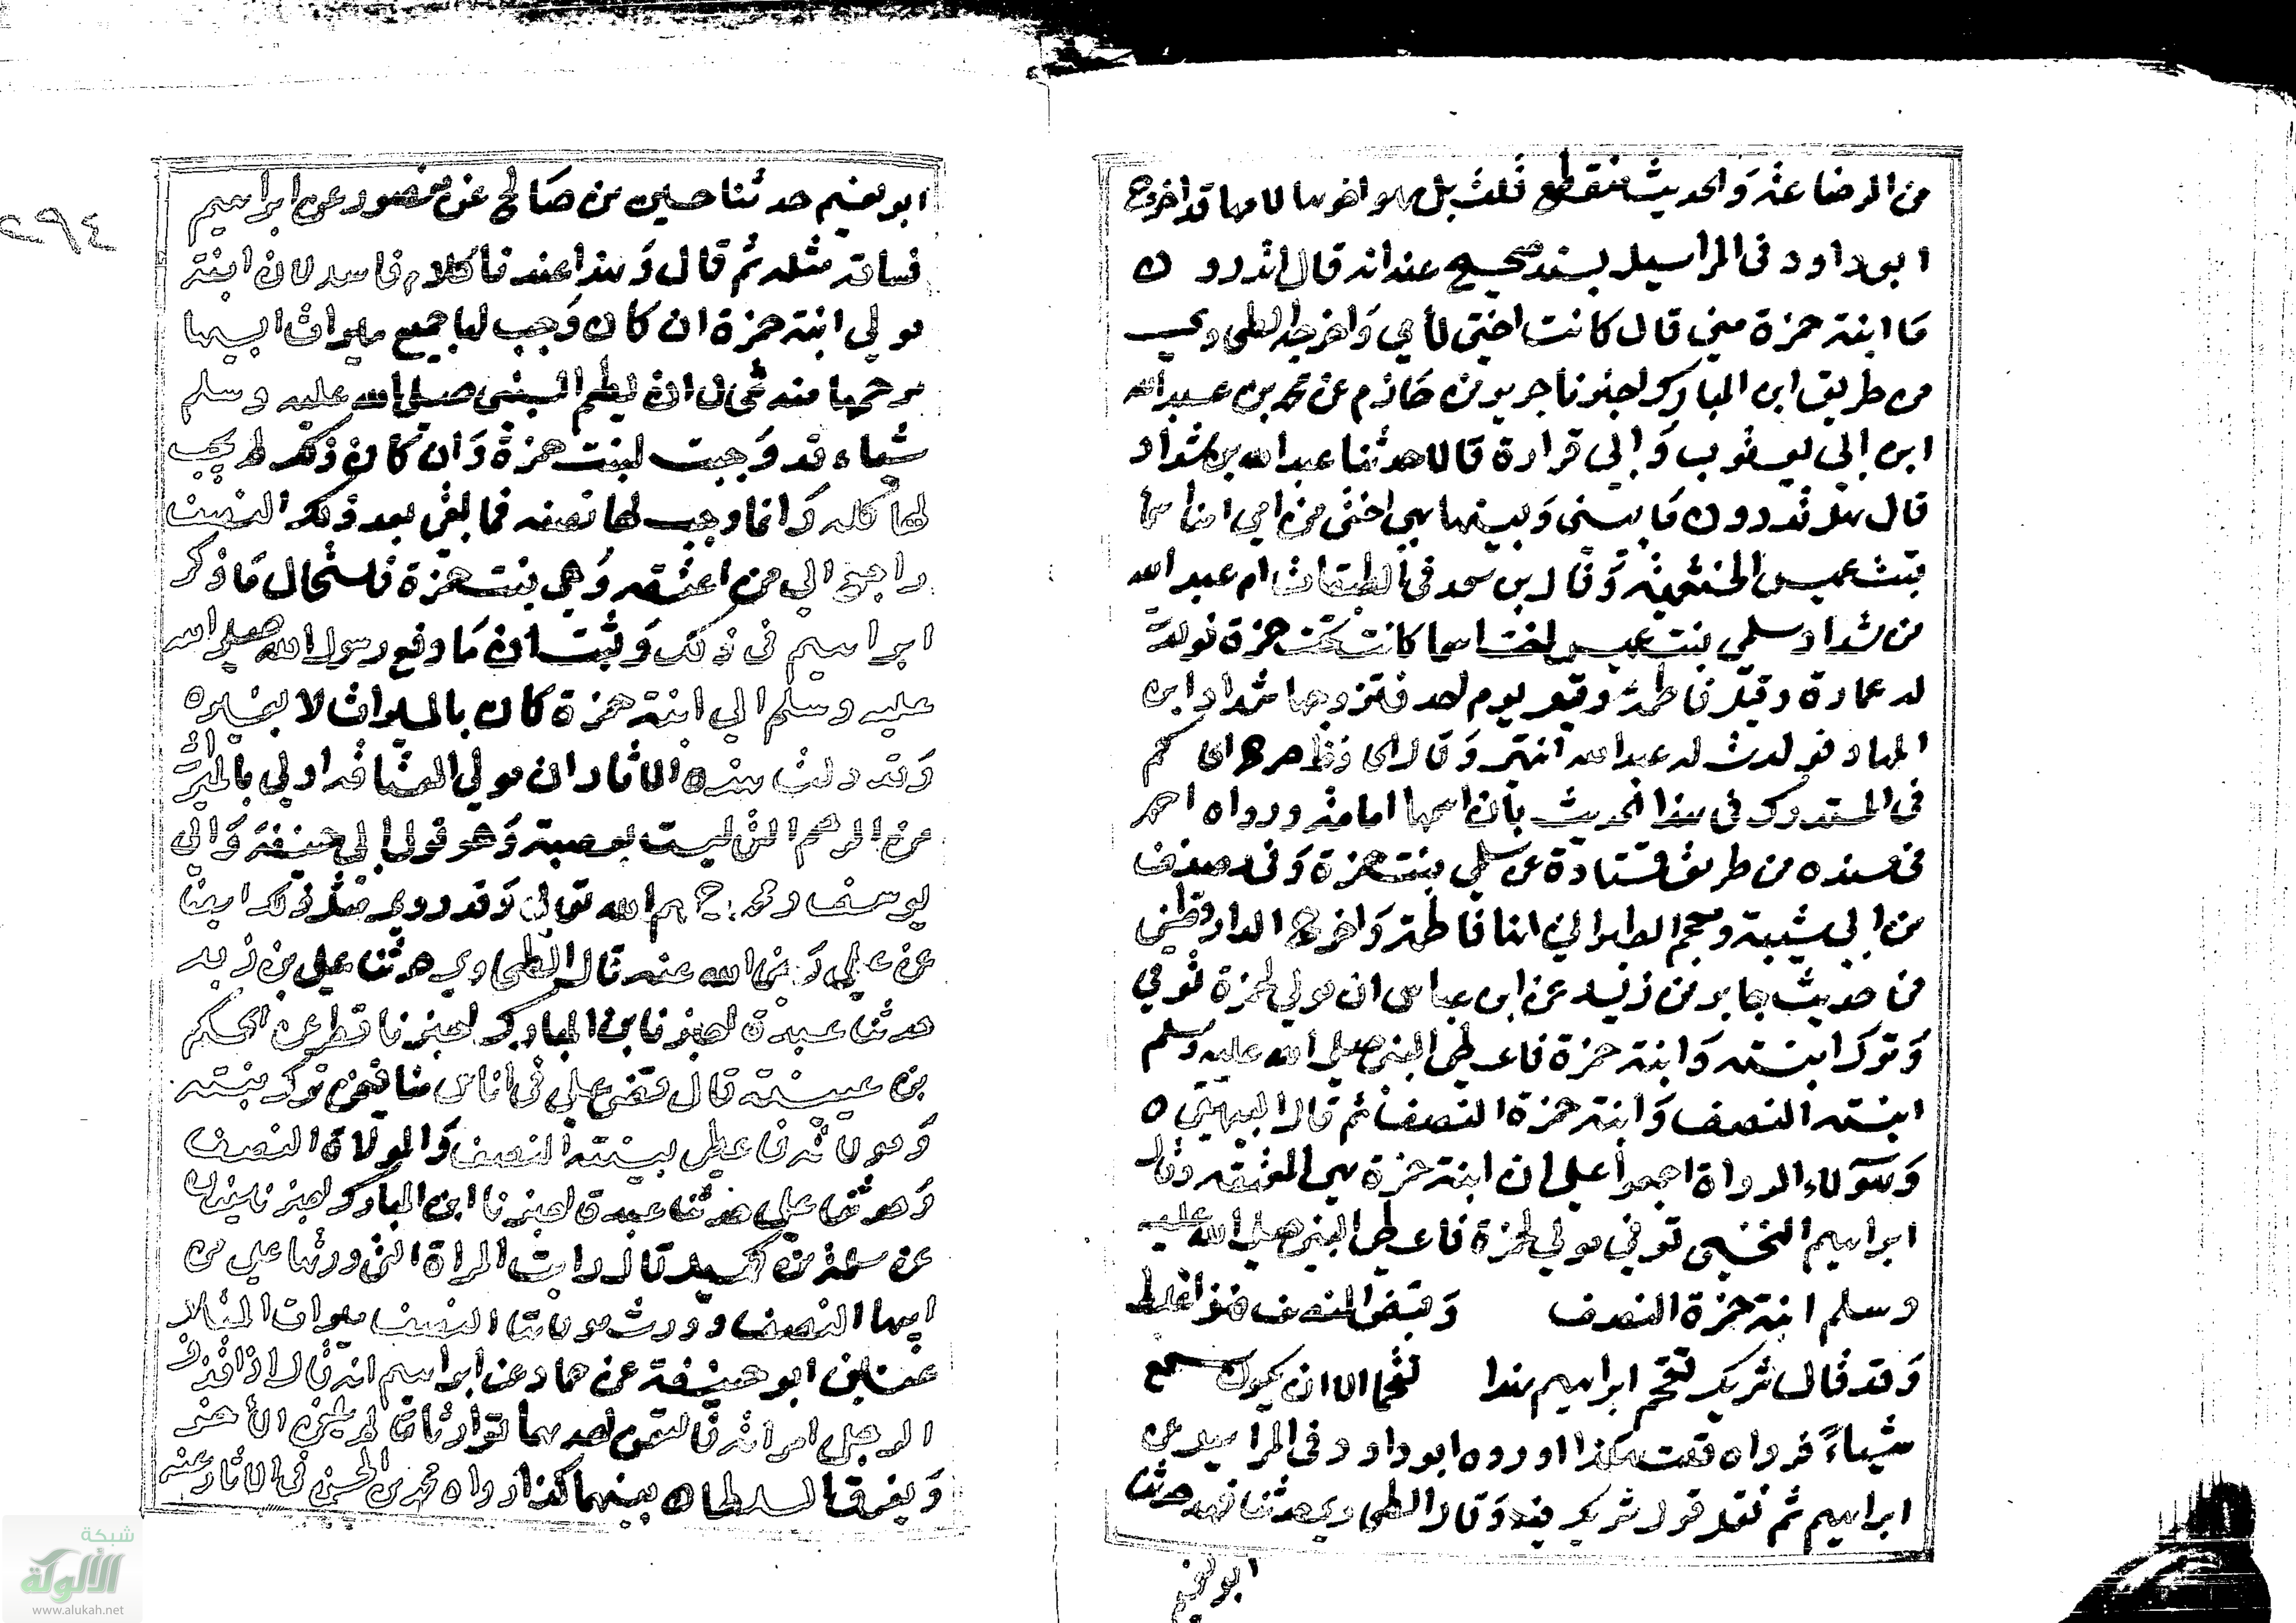 من الرضاعة والحديث منقطع قلت بل هو اخوها لامها قد اخرج
ابو داود في المراسيل بسند صحيح عنه انه قال اتدرون
ما ابنة حمزة مني قال كانت اختي لأمي واخرجه الطحاوي
من طريق ابن المبارك اخبرنا جرير بن حازم عن محمد بن عبد الله
ابن ابي يعقوب وابي فزارة قالا حدثنا عبد الله بن شداد
قال هل تدرون ما بيني وبينها هي اختي من امي امنا اسما
بنت عميس الخثعمية وقال ابن سعد في الطبقات ام عبد الله
بن شداد سلمى بنت عميس اخت اسما كانت تحت حمزة فولدت
له عمارة وقيل فاطمة وقتل يوم احد فتزوجها شداد ابن
الهاد فولدت له عبد الله انتهى وقال
في المستدرك في هذا الحديث بأن اسمها امامة ورواه احمد
في مسنده من طريق قتادة عن سلمى بنت حمزة وفي مصنف
بن ابي شيبة ومعجم الطبراني انها فاطمة واخرج الدارقطني
من حديث جابر بن زيد عن ابن عباس ان مولى لحمزة توفي
وترك ابنته وابنة حمزة فاعطى النبي صلى الله عليه وسلم
ابنته النصف وابنة حمزة النصف ثم قال البيهقي
وهؤلاء الرواة اجمعوا على ان ابنة حمزة هي المعتقة وقال
ابراهيم النخعي توفي مولى لحمزة فاعطى النبي صلى الله عليه
وسلم ابنة حمزة النصف وقبض النصف
وقد قال شريك تقحم ابراهيم هذا تقحما الا ان يكون سمع
شيئاً فرواه قلت هكذا اورده ابو داود في المراسيل عن
ابراهيم ثم نقل قول شريك فيه وقال الطحاوي حدثنا فهد حدثنا
ابو نعيم
٢٩٤
ابو نعيم حدثنا حسين بن صالح عن منصور عن ابراهيم
فساقه مثله ثم قال وهذا عندنا كلام فاسد لان ابنة
مولى ابنة حمزة ان كان وجب لها جميع ميراث ابيها
برحمها منه فمحال ان يطعم النبي صلى الله عليه وسلم
شياء قد وجبت لبنت حمزة وان كان ذلك لم يجب
لها كله وانما وجب لها نصفه فما بقي بعد ذلك النصف
راجع الي من اعتقه وهي بنت حمزة فاستحال ما ذكر
ابراهيم في ذلك وثبت ان ما دفع رسول الله صلى الله
عليه وسلم الي ابنة حمزة كان بالميراث لا بغيره
وقد دلت هذه الاثار ان مولى العتاقه اولى بالميراث
من الرحم الذي ليست بعصبة وهو قول ابي حنيفة وابي
يوسف ومحمد رحمهم الله تعالى وقد روي مثل ذلك ايضا
عن علي رضي الله عنه قال الطحاوي حدثنا علي بن زيد
حدثنا عبدة اخبرنا ابن المبارك اخبرنا فطر عن الحكم
بن عيينة قال قضى علي في اناس منا فيمن ترك بنته
ومولاته فاعطى ابنته النصف والمولاة النصف
وحدثنا علي حدثنا عبدة اخبرنا ابن المبارك اخبرنا سفيان
عن سلمة بن كهيل قال رايت المراة التي ورثها علي من
ابيها النصف وورث مولاتها النصف ميراث
ابو حنيفة عن حماد عن ابراهيم انه قال اذا قذف
الرجل امراته فالتعن احدهما توارثا ما لم يلتعن الآخر
ويفرق السلطان بينهما كذا رواه محمد بن الحسن في الاثار عنه
شبكة
الألوكة
www.alukah.net